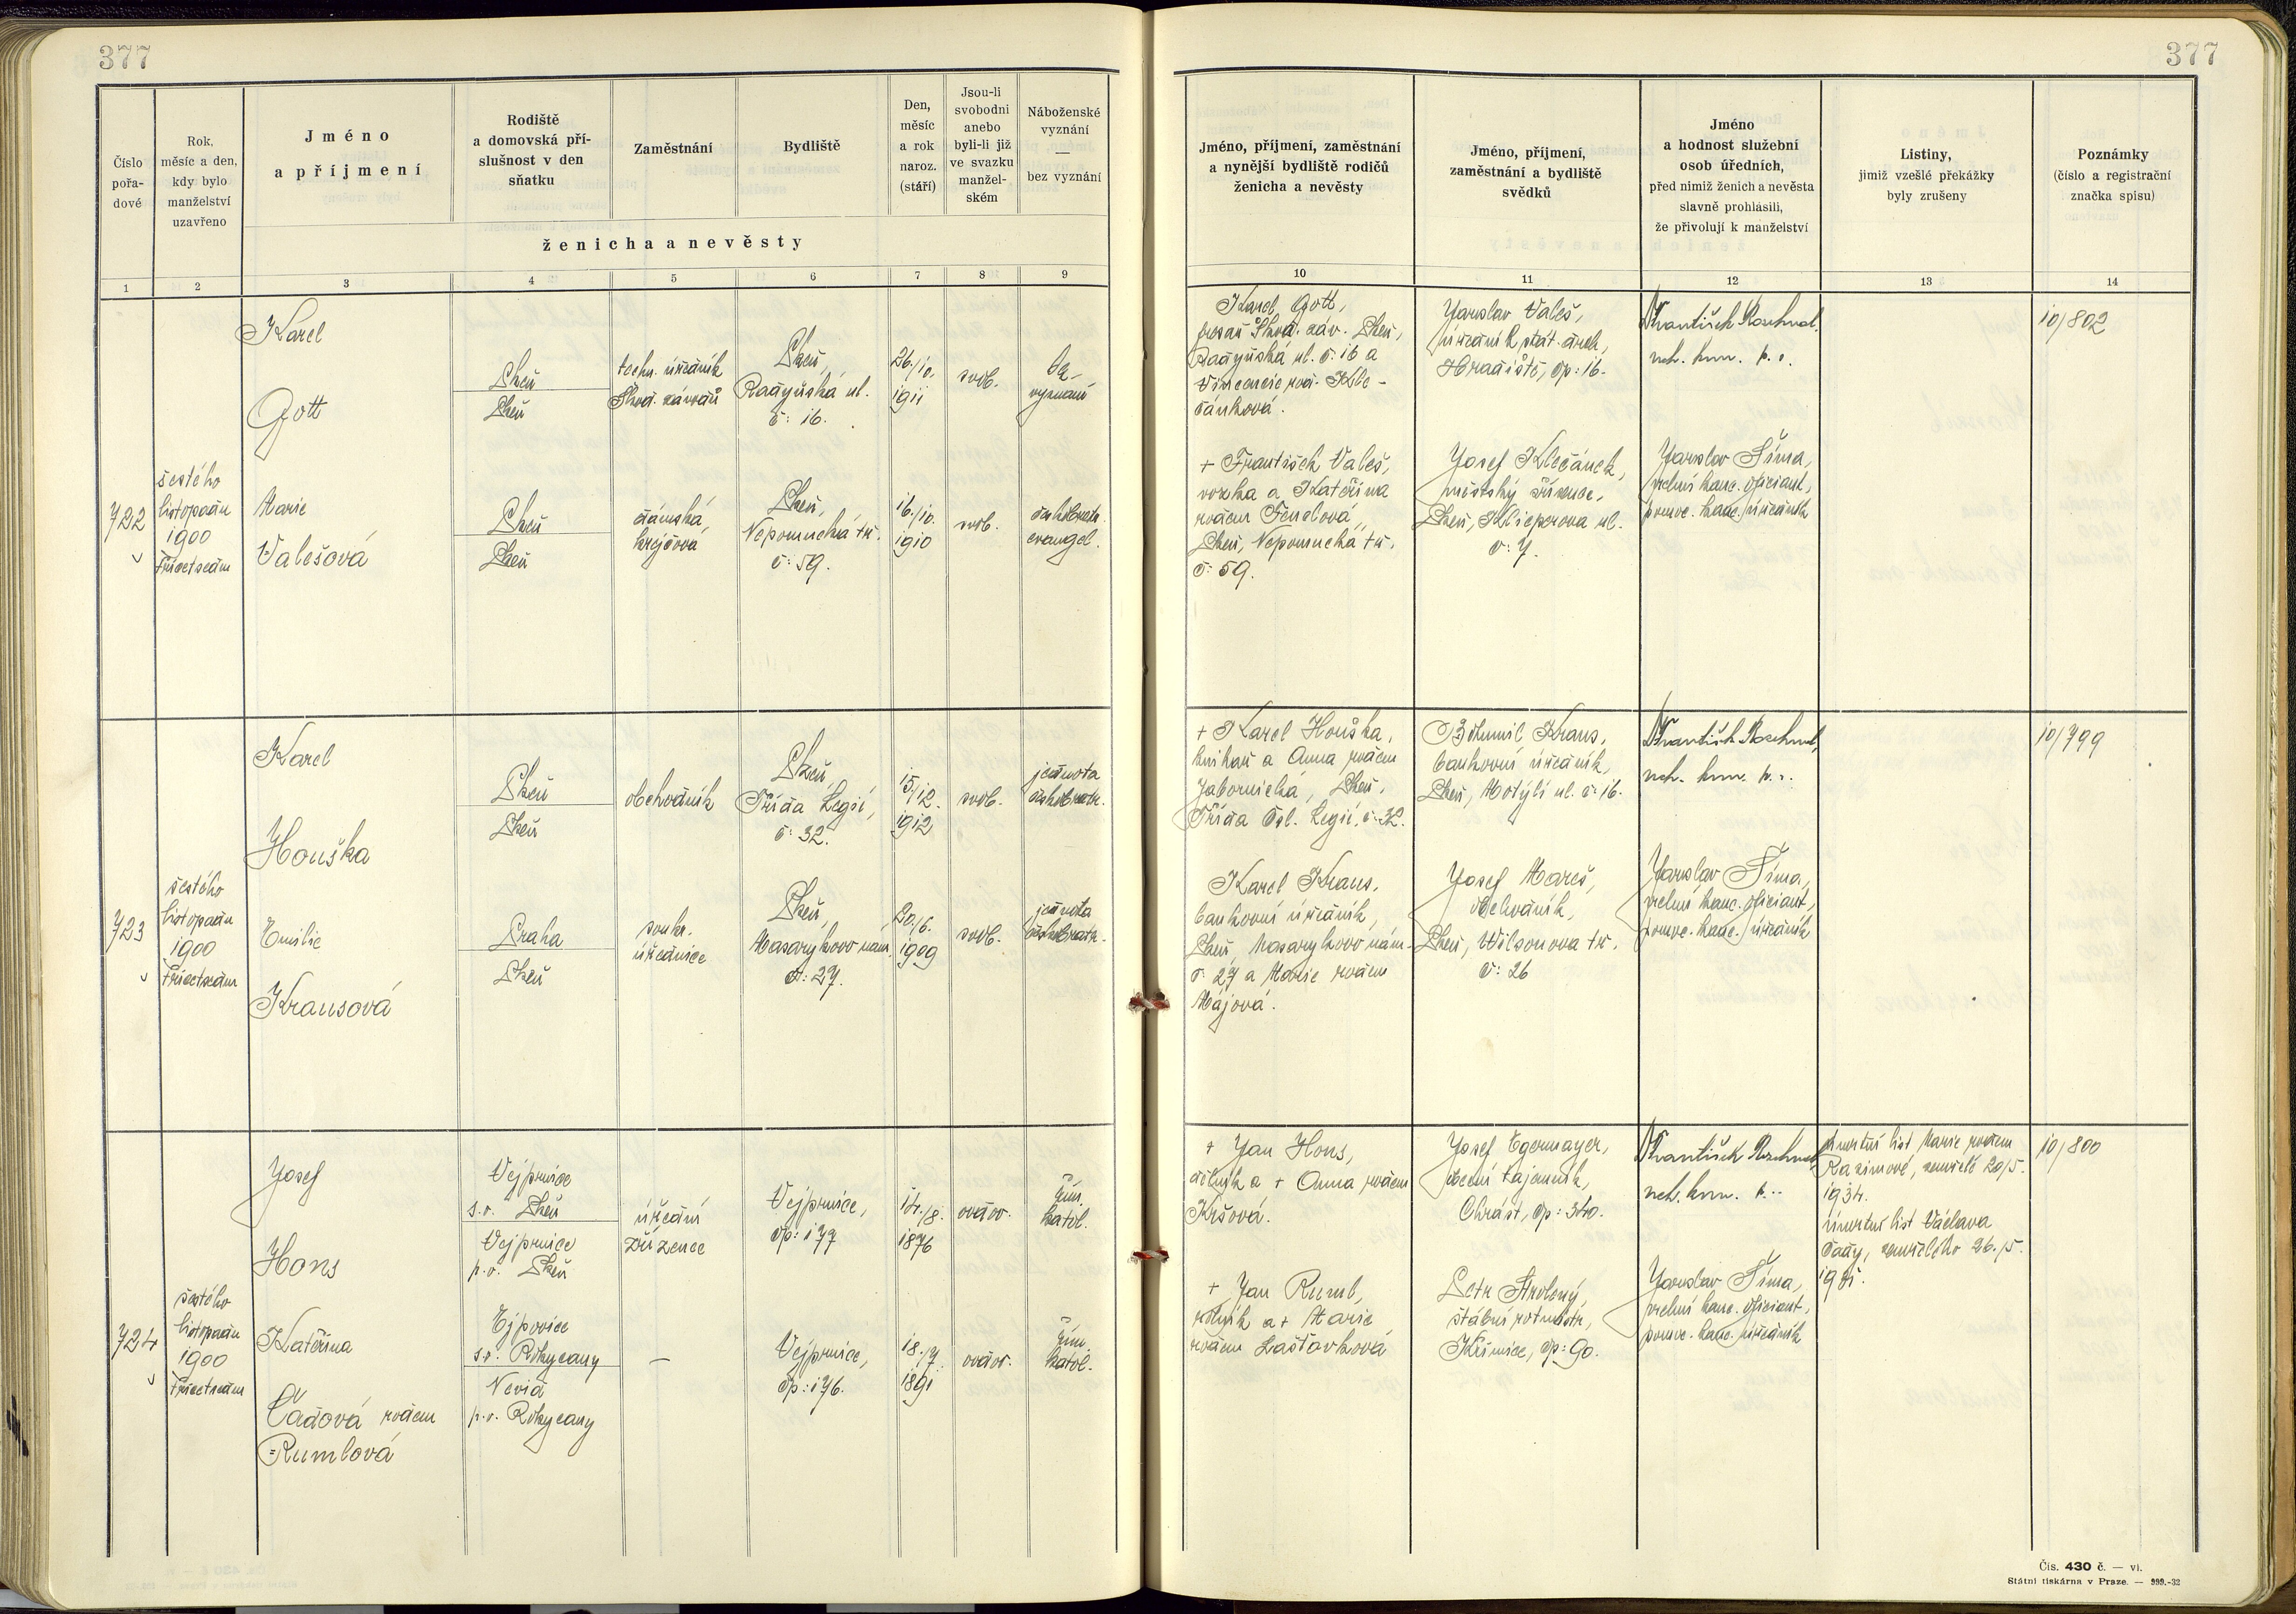 377
377
Číslo
pořa-
dové
Rok,
měsíc a den,
kdy bylo
manželství
uzavřeno
Jméno
a příjmení
Rodiště
a domovská pří-
slušnost v den
sňatku
Zaměstnání
Bydliště
Den,
měsíc
a rok
naroz.
(stáří)
Jsou-li
svobodni
anebo
byli-li již
ve svazku
manžel-
ském
Náboženské
vyznání
—
bez vyznání
ženicha a nevěsty
Jméno, příjmení, zaměstnání
a nynější bydliště rodičů
ženicha a nevěsty
Jméno, příjmení,
zaměstnání a bydliště
svědků
Jméno
a hodnost služební
osob úředních,
před nimiž ženich a nevěsta
slavně prohlásili,
že přivolují k manželství
Listiny,
jimiž vzešlé překážky
byly zrušeny
Poznámky
(číslo a registrační
značka spisu)
1 2 3 4 5 6 7 8 9 10 11 12 13 14
722
šestého
listopadu
1900
třicetsedm
Karel
Gott
Plzeň
Plzeň
techn. úředník
Škod. závodů
Plzeň,
Radyňská ul.
č: 16.
26./10.
1911
svob.
bez
vyznání
Karel Gott,
Škod. záv. Plzeň,
Radyňská ul. č. 16 a
Vincencie roz. Kle-
čánková.
Jaroslav Valeš,
úředník stát. drah,
Hradiště, čp: 16.
František
10/802
Marie
Valešová
Plzeň
Plzeň
dámská
krejčová
Plzeň,
Nepomucká tř.
č: 59.
16./10.
1910
svob.
českobratr.
evangel.
+ František Valeš,
a Kateřina
rozen
Plzeň, Nepomucká tř.
č: 59.
Josef Klečánek,
městský zřízenec,
Plzeň, Klicperova ul.
č: 7.
Jaroslav Šíma,
kanc. oficiant,
pomoc. kanc. úředník
723
šestého
listopadu
1900
třicetsedm
Karel
Houška
Plzeň
Plzeň
obchodník
Plzeň
Třída Legií,
č: 32.
15/12.
1912
svob.
jednota
českobratr.
+ Karel Houška,
knihař a Anna rozen
Jabornická, Plzeň,
Třída Čsl. Legií, č: 32.
Bohumil Kraus,
bankovní úředník,
Plzeň, Motýlí ul. č: 16.
František
10/799
Emilie
Krausová
Praha
Plzeň
soukr.
úřednice
Plzeň,
Masarykovo nám.
č: 27.
20./6.
1909
svob.
jednota
českobratr.
Karel Kraus,
bankovní úředník,
Plzeň, Masarykovo nám.
č. 27 a Marie rozen
Májová.
Josef Mareš,
obchodník,
Plzeň, Wilsonova tř.
č: 26
Jaroslav Šíma,
kanc. oficiant,
pomoc. kanc. úředník
724
šestého
listopadu
1900
třicetsedm
Josef
Hons
Vejprnice
s.o. Plzeň
Vejprnice
p.o. Plzeň
úřední
zřízenec
Vejprnice,
čp: 177
14./8.
1876
ovdov.
řím.
katol.
+ Jan Hons,
dělník a + Anna rozen
Kršová.
Josef Egermayer,
obecní tajemník,
Chrást, čp: 340.
František
úmrtní list Marie rozen
Razimové, zemřelé 20/5.
1934.
úmrtní list Václava
Čady, zemřelého 26./5.
10/800
Kateřina
Čadová rozen
Rumlová
Ejpovice
s.o. Rokycany
p.o. Rokycany
—
Vejprnice,
čp: 176.
18./7.
1891
ovdov.
řím.
katol.
+ Jan Ruml,
rolník a + Marie
rozen Laštovková
Petr Strolený,
štábní rotmistr,
Křimice, čp: 90.
Jaroslav Šíma,
kanc. oficiant,
pomoc. kanc. úředník
Čís. 430 č. — vl.
Státní tiskárna v Praze. — 999.-32